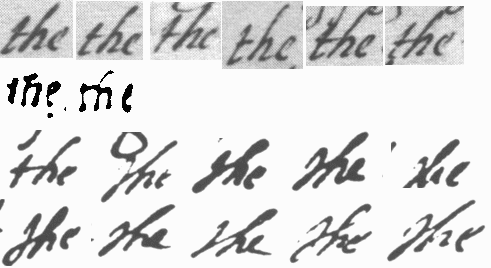 the the the the the the
the the
the the the the the
the the the the the